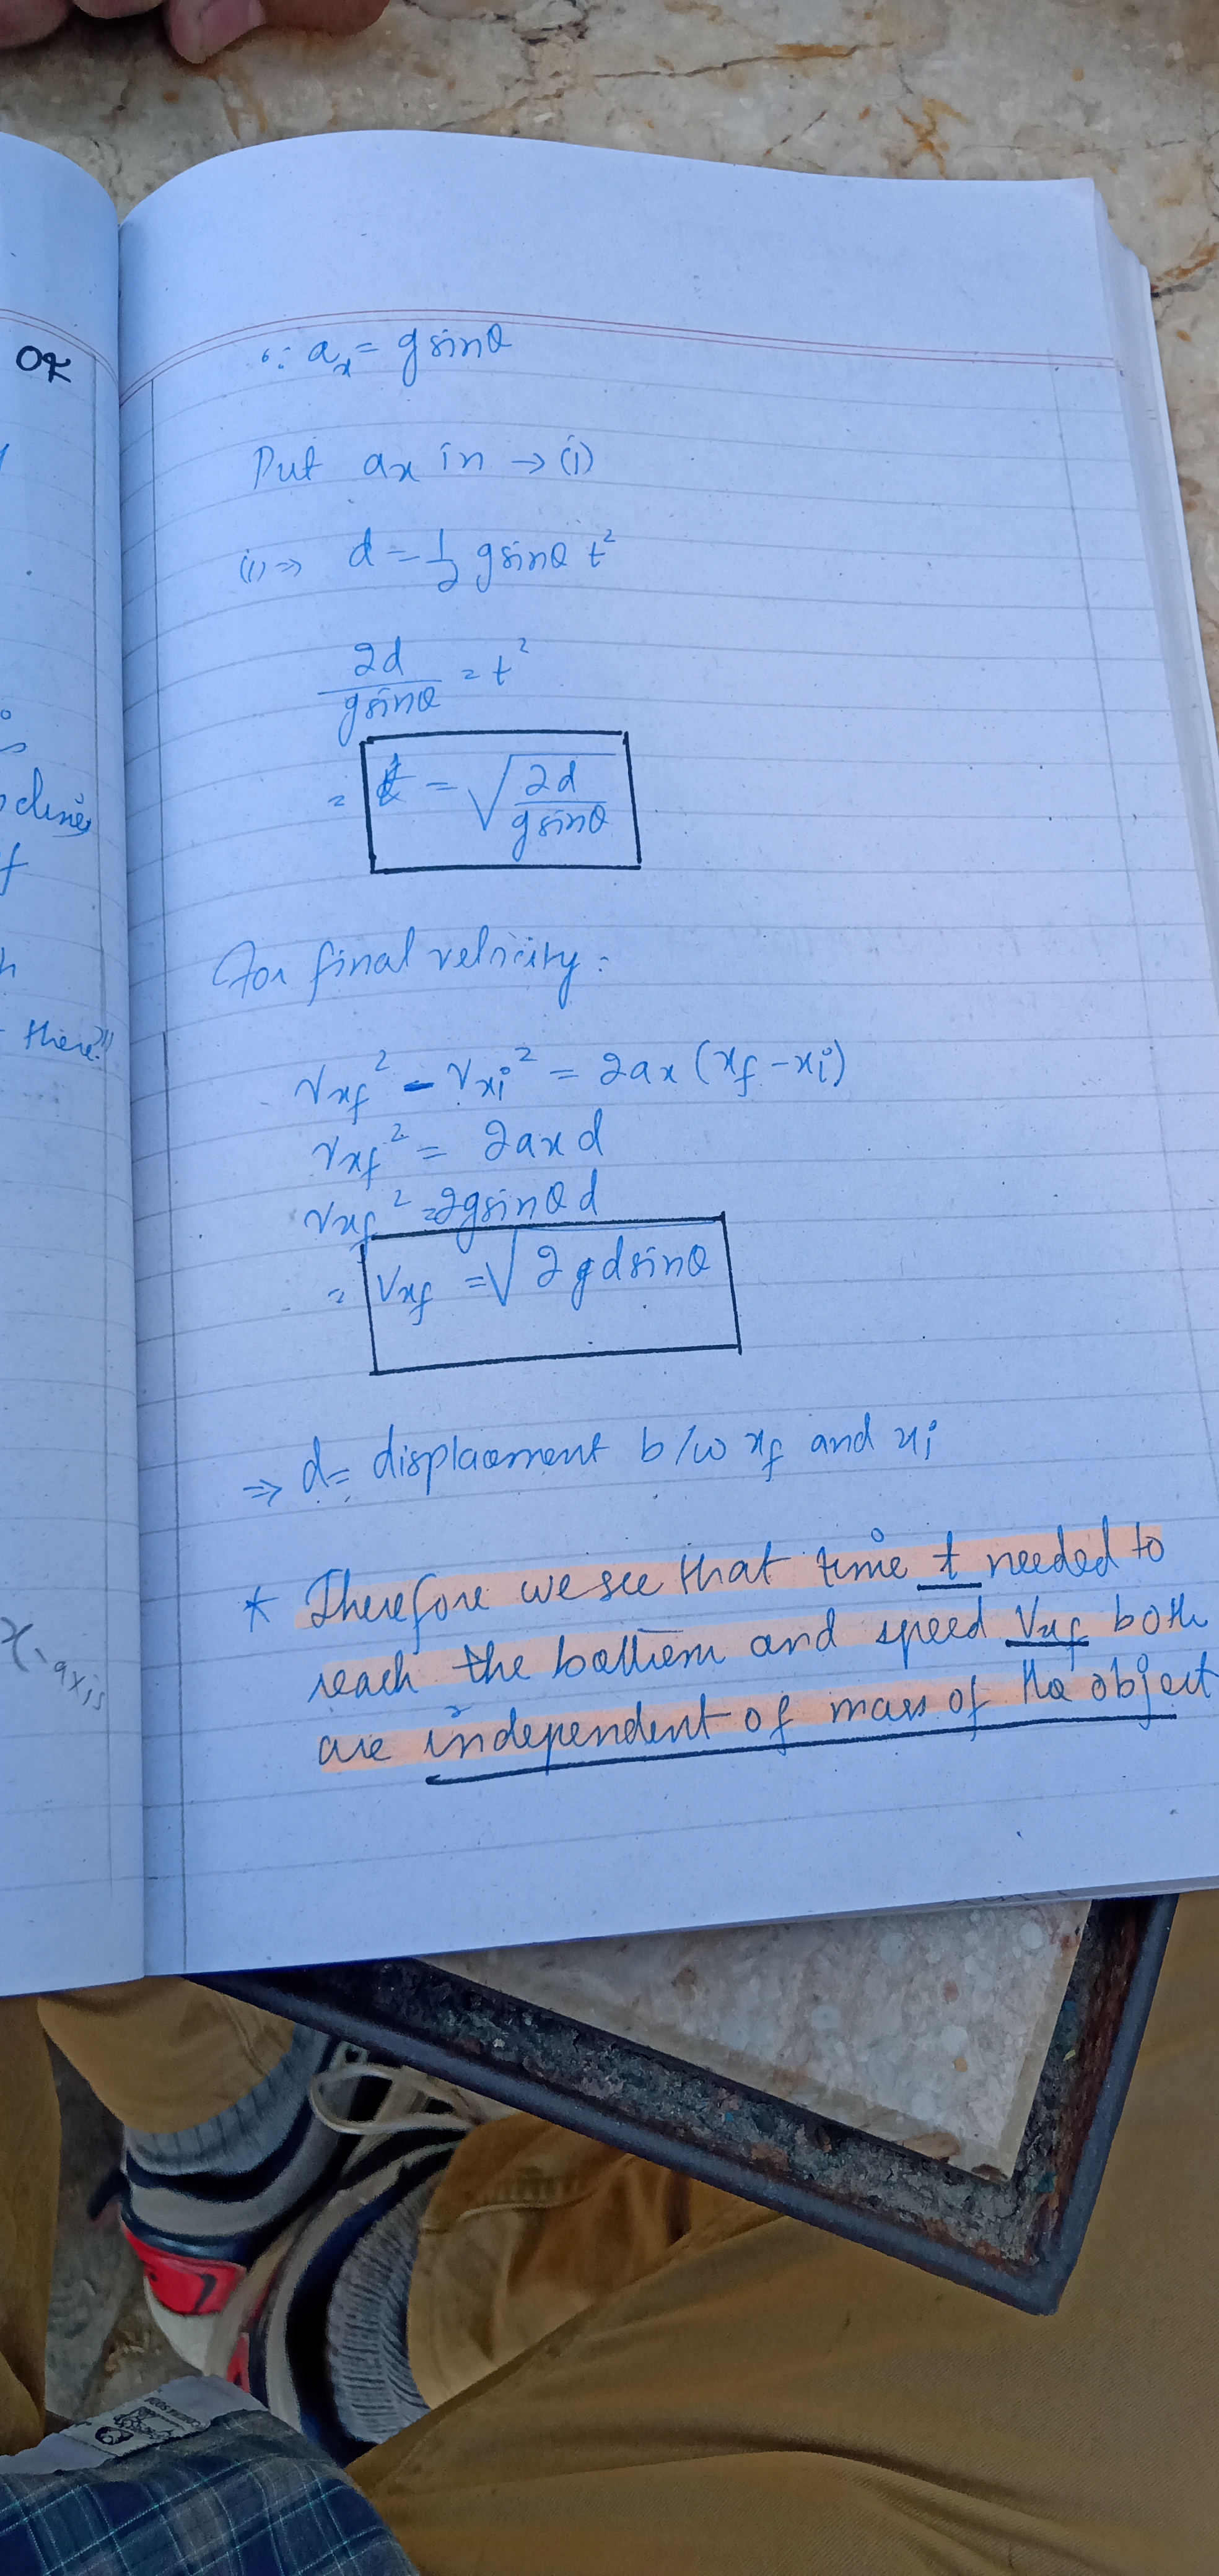 OR
∵ ax = g sinθ
Put ax in → (i)
(i) ⇒ d = 1/2 g sinθ t²
2d/g sinθ = t²
= t = √2d/g sinθ
For final velocity:
Vxf² - Vxi² = 2ax (xf - xi)
Vxf² = 2ax d
Vxf² = 2g sinθ d
= Vxf = √2gd sinθ
⇒ d = displacement b/w xf and xi
* Therefore we see that time t needed to
reach the bottom and speed Vxf both
are independent of mass of the object
there?"
x-axis